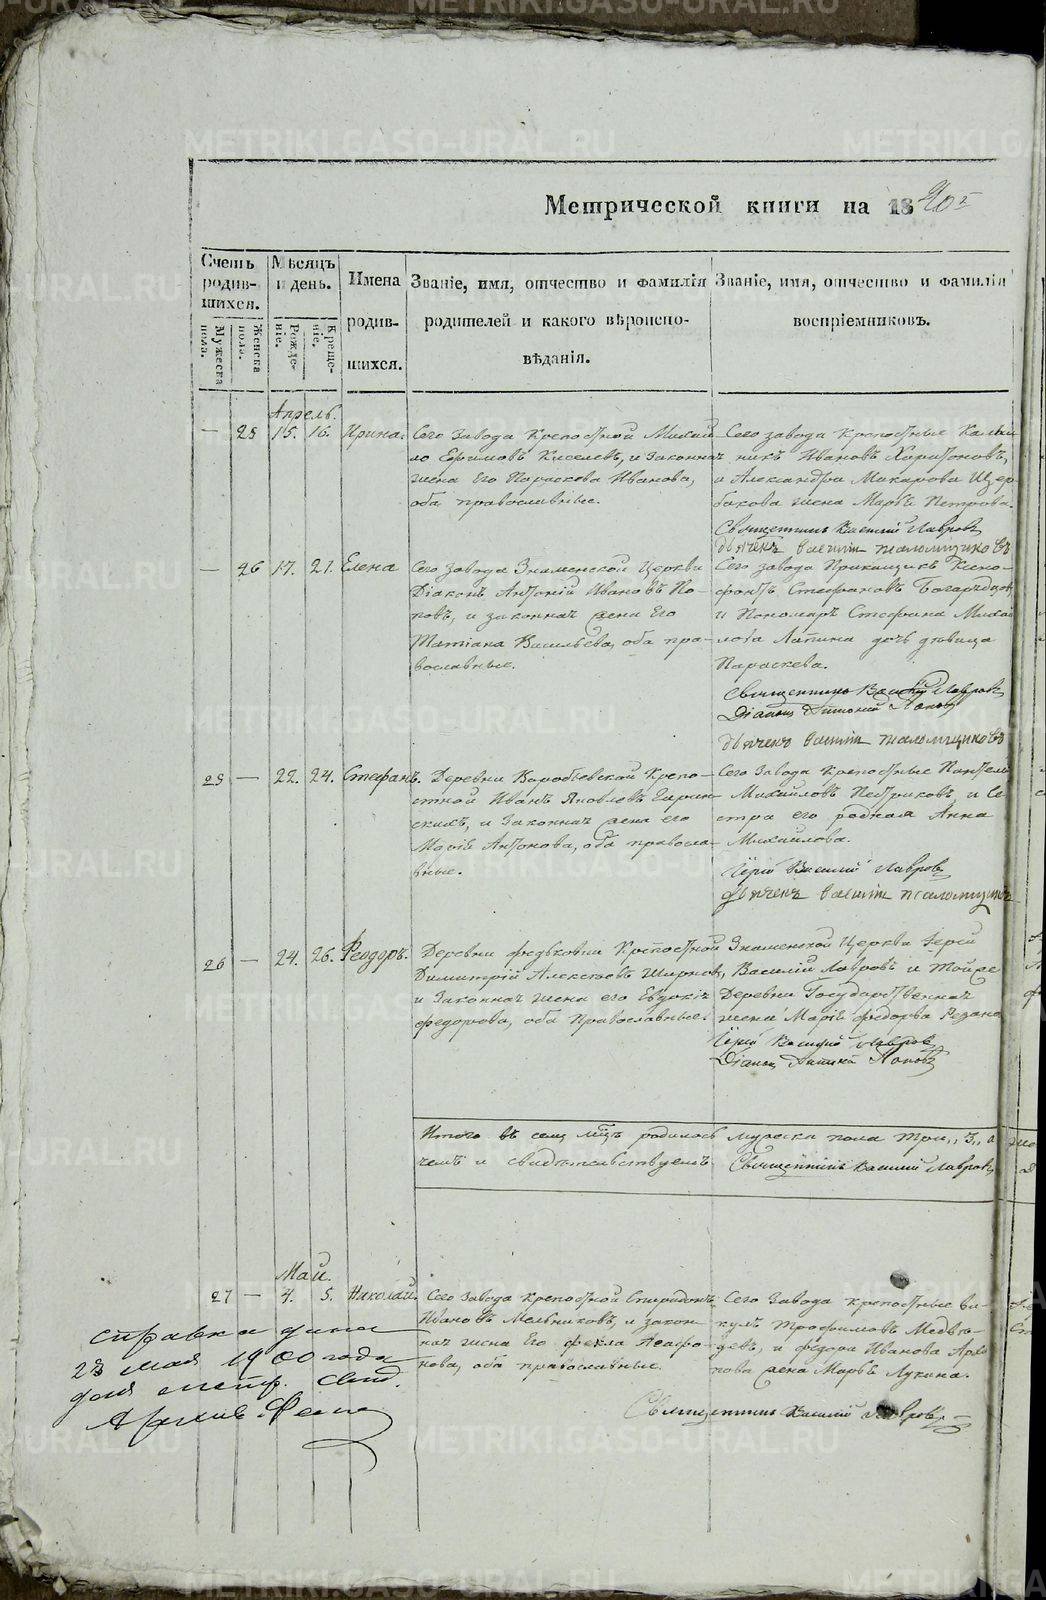 Метрической книги на 1840й
Счетъ родив-шихся.
Мѣсяцъ и день.
Имена родив-шихся.
Званіе, имя, отчество и фамилія родителей и какого вѣроиспо-вѣданія.
Званіе, имя, отчество и фамилія воспріемниковъ.
Мужеска пола.
Женска пола.
Рожде-ніе.
Креще-ніе.
Апрель.
— 25 15. 16. Ирина.
Сего завода Крепостной Михай
ло Ефимовъ Киселевъ, и законная
жена Его Параскова Иванова,
оба православные.
Сего завода крепостные
никъ Ивановъ Харитоновъ,
и Александра Макарова Щер-
бакова жена Марья Петрова.
Священникъ Василій Лавровъ
дьячекъ Василіи Псаломщиковъ
— 26 17. 21. Елена
Сего завода Знаменской Церкви
Діаконъ Антоній Ивановъ По-
повъ, и законная жена Его
Татіана Васильева, оба пра-
вославные.
Сего завода Прикащикъ Ксено-
фонтъ Стефановъ
и Пономаря Стефана Михай
лова Лапина дочь дѣвица
Параскева.
Священникъ Василій Лавровъ
Діаконъ Антоній Поповъ
дьячекъ Василіи Псаломщиковъ
25 — 22. 24. Стефанъ.
Деревни Воробьевской Крепо-
стной Иванъ Яковлевъ
скихъ, и Законная жена его
Марія Антонова, оба правосла-
вные.
Сего Завода Крепостные Пантелей
Михайловъ Пестриковъ, и Се-
стра его родная Анна
Михайлова.
Іерей Василій Лавровъ
дьячекъ Василіи Псаломщиковъ
26 — 24. 26. Феодоръ.
Деревни Федьковки Крѣпостной
Димитрій Алексѣевъ Ширяевъ,
и Законная жена его Евдокія
Федорова, оба Православные.
Знаменской Церкви Іерей
Василій Лавровъ и Тойже
Деревни Государственная
жена Марія Федорова
Іерей Василий Лавровъ
Діаконъ Антоній Поповъ
Итого въ семъ мцѣ родилось мужеска пола три, 3, а
чемъ и свидѣтельствуемъ. Священникъ Василій Лавровъ
Май.
27 — 4. 5. Николай.
Сего завода крепостной Спиридонъ
Ивановъ Мельниковъ, и закон-
ная жена Его Фекла Агафо-
нова, оба православные.
Сего Завода крепостные Ви-
кулъ Трофимовъ Медвѣ-
девъ, и Федора Иванова
пова жена Марья Лукина.
Священникъ Василій Лавровъ
справка дана
23 мая 1900 года
для метр. свид.
METRIKI.GASO-URAL.RU